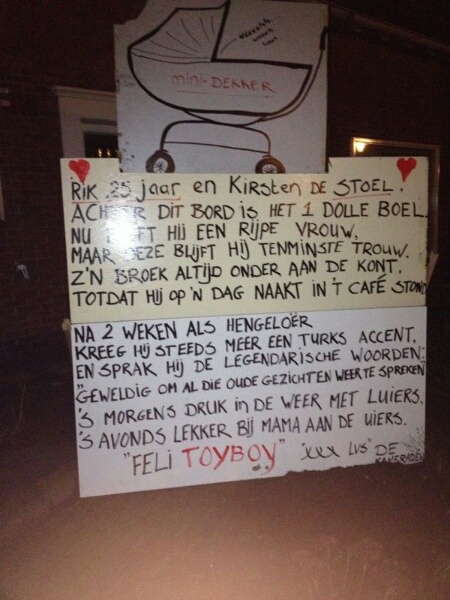 mini-DEKKER
RIK 25 jaar en KIRSTEN DE STOEL.
ACHTER DIT BORD IS HET 1 DOLLE BOEL.
NU HEEFT HIJ EEN RIJPE VROUW,
MAAR DEZE BLIJFT HIJ TENMINSTE TROUW.
Z'N BROEK ALTIJD ONDER AAN DE KONT.
TOTDAT HIJ OP 'N DAG NAAKT IN 'T CAFÉ STOND
NA 2 WEKEN ALS HENGELOËR
KREEG HIJ STEEDS MEER EEN TURKS ACCENT.
EN SPRAK HIJ DE LEGENDARISCHE WOORDEN:
"GEWELDIG OM AL DIE OUDE GEZICHTEN WEER TE SPREKEN"
'S MORGENS DRUK in DE WEER MET LUIERS.
'S AVONDS LEKKER BIJ MAMA AAN DE UIERS.
"FELI TOYBOY" "XXX LVS" DE
KAMERADEN